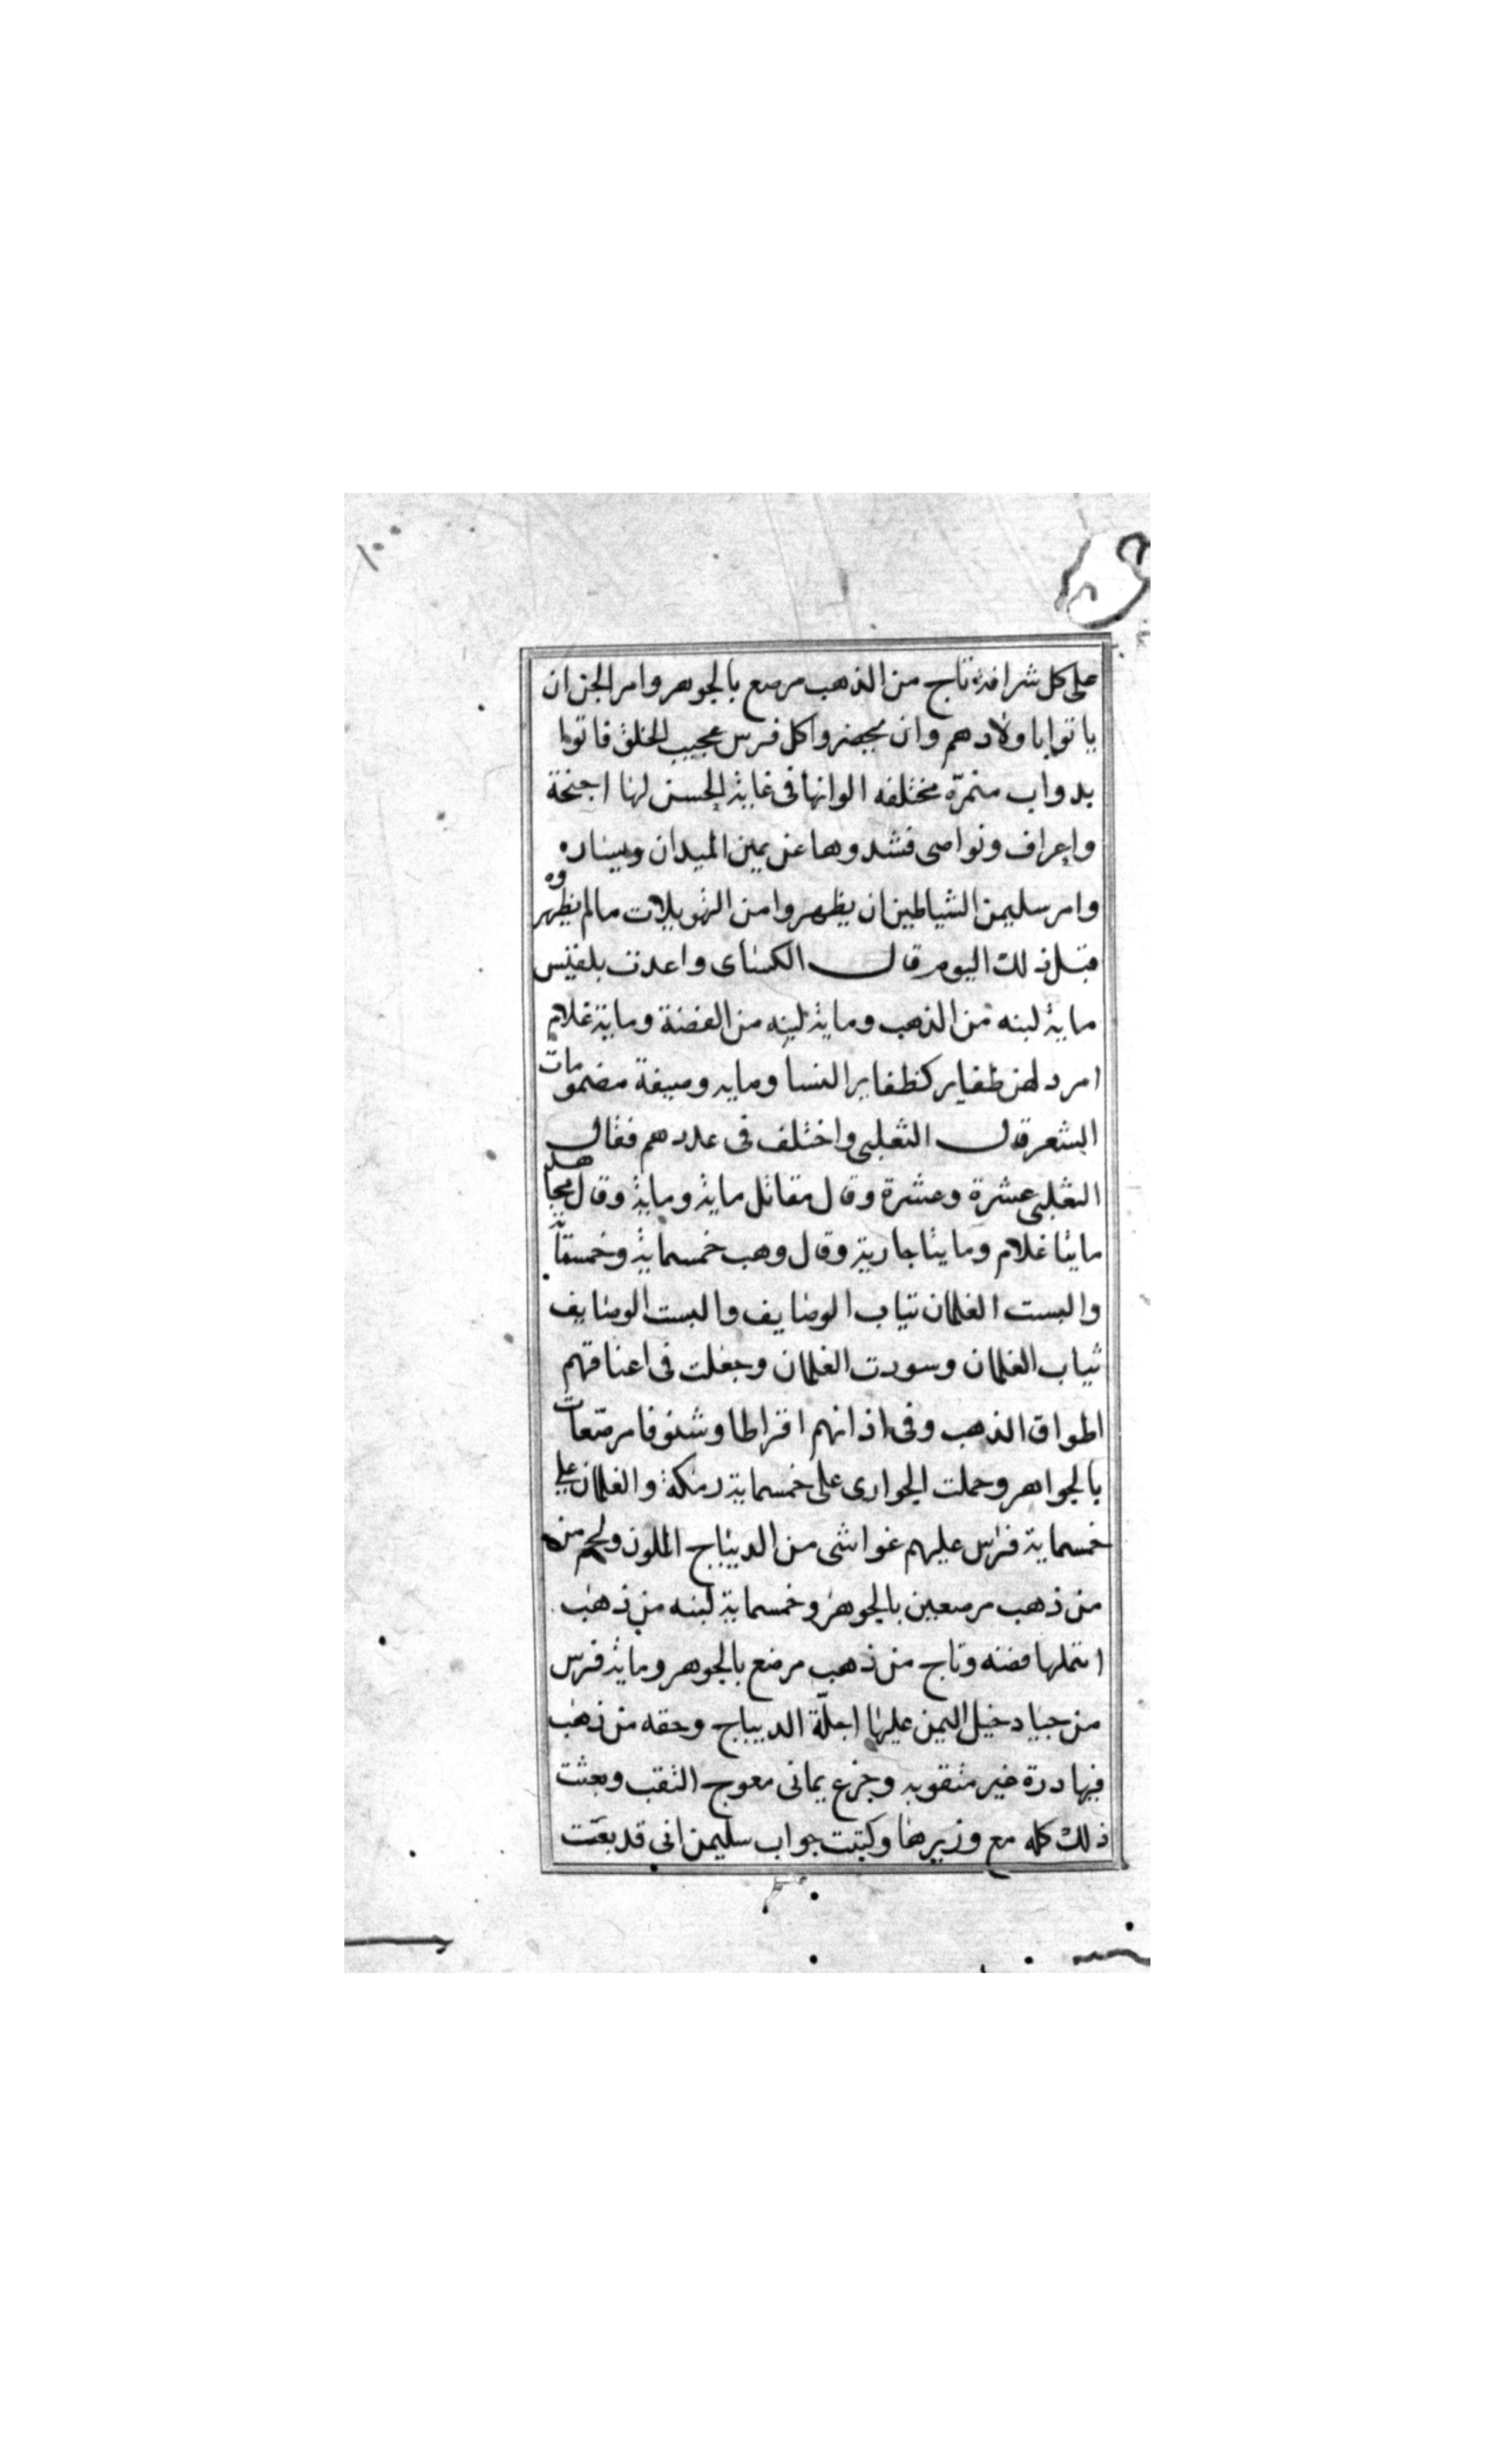 على كل شرافة تاج من الذهب مرصع بالجوهر وامر الجن ان
ياتوا باولادهم وان يحضروا كل فرس عجيب الخلق فاتوا
بدواب منمرّة مختلفه الوانها فى غاية الحسن لها اجنحة
واعراف ونواصى فشدوها عن يمين الميدان ويساره
وامر سليمن الشياطين ان يظهروا من التهويلات مالم يظهروه
قبل ذلك اليوم قال الكساى واعدت بلقيس
ماية لبنه من الذهب وماية لبنه من الفضة وماية غلام
امرد لهن ظفاير كظفاير النسا ومايه وصيفة مضمومات
الشعر قال الثعلبى واختلف فى عددهم فقال
الثعلبى عشرة وعشرة وقال مقاتل ماية وماية وقال مجاهد
مايتا غلام ومايتا جارية وقال وهب خمسماية وخمسماية
والبست الغلمان ثياب الوصايف والبست الوصايف
ثياب الغلمان وسورت الغلمان وجعلت فى اعناقهم
اطواق الذهب وفى اذانهم اقراطا وشنوفا مرصّعات
بالجواهر وحملت الجوارى على خمسماية رمكة والغلمان على
خمسماية فرس عليهم غواشى من الديباج الملون ولجم من
من ذهب مرصعين بالجوهر وخمسماية لبنه من ذهب
مثلها فضه وتاج من ذهب مرصع بالجوهر وماية فرس
من جياد خيل اليمن عليها اجلّة الديباج وحقه من ذهب
فيها درة غير مثقوبه وجزع يمانى معوج الثقب وبعثت
ذلك كله مع وزيرها وكتبت جواب سليمن انى قد بعثت